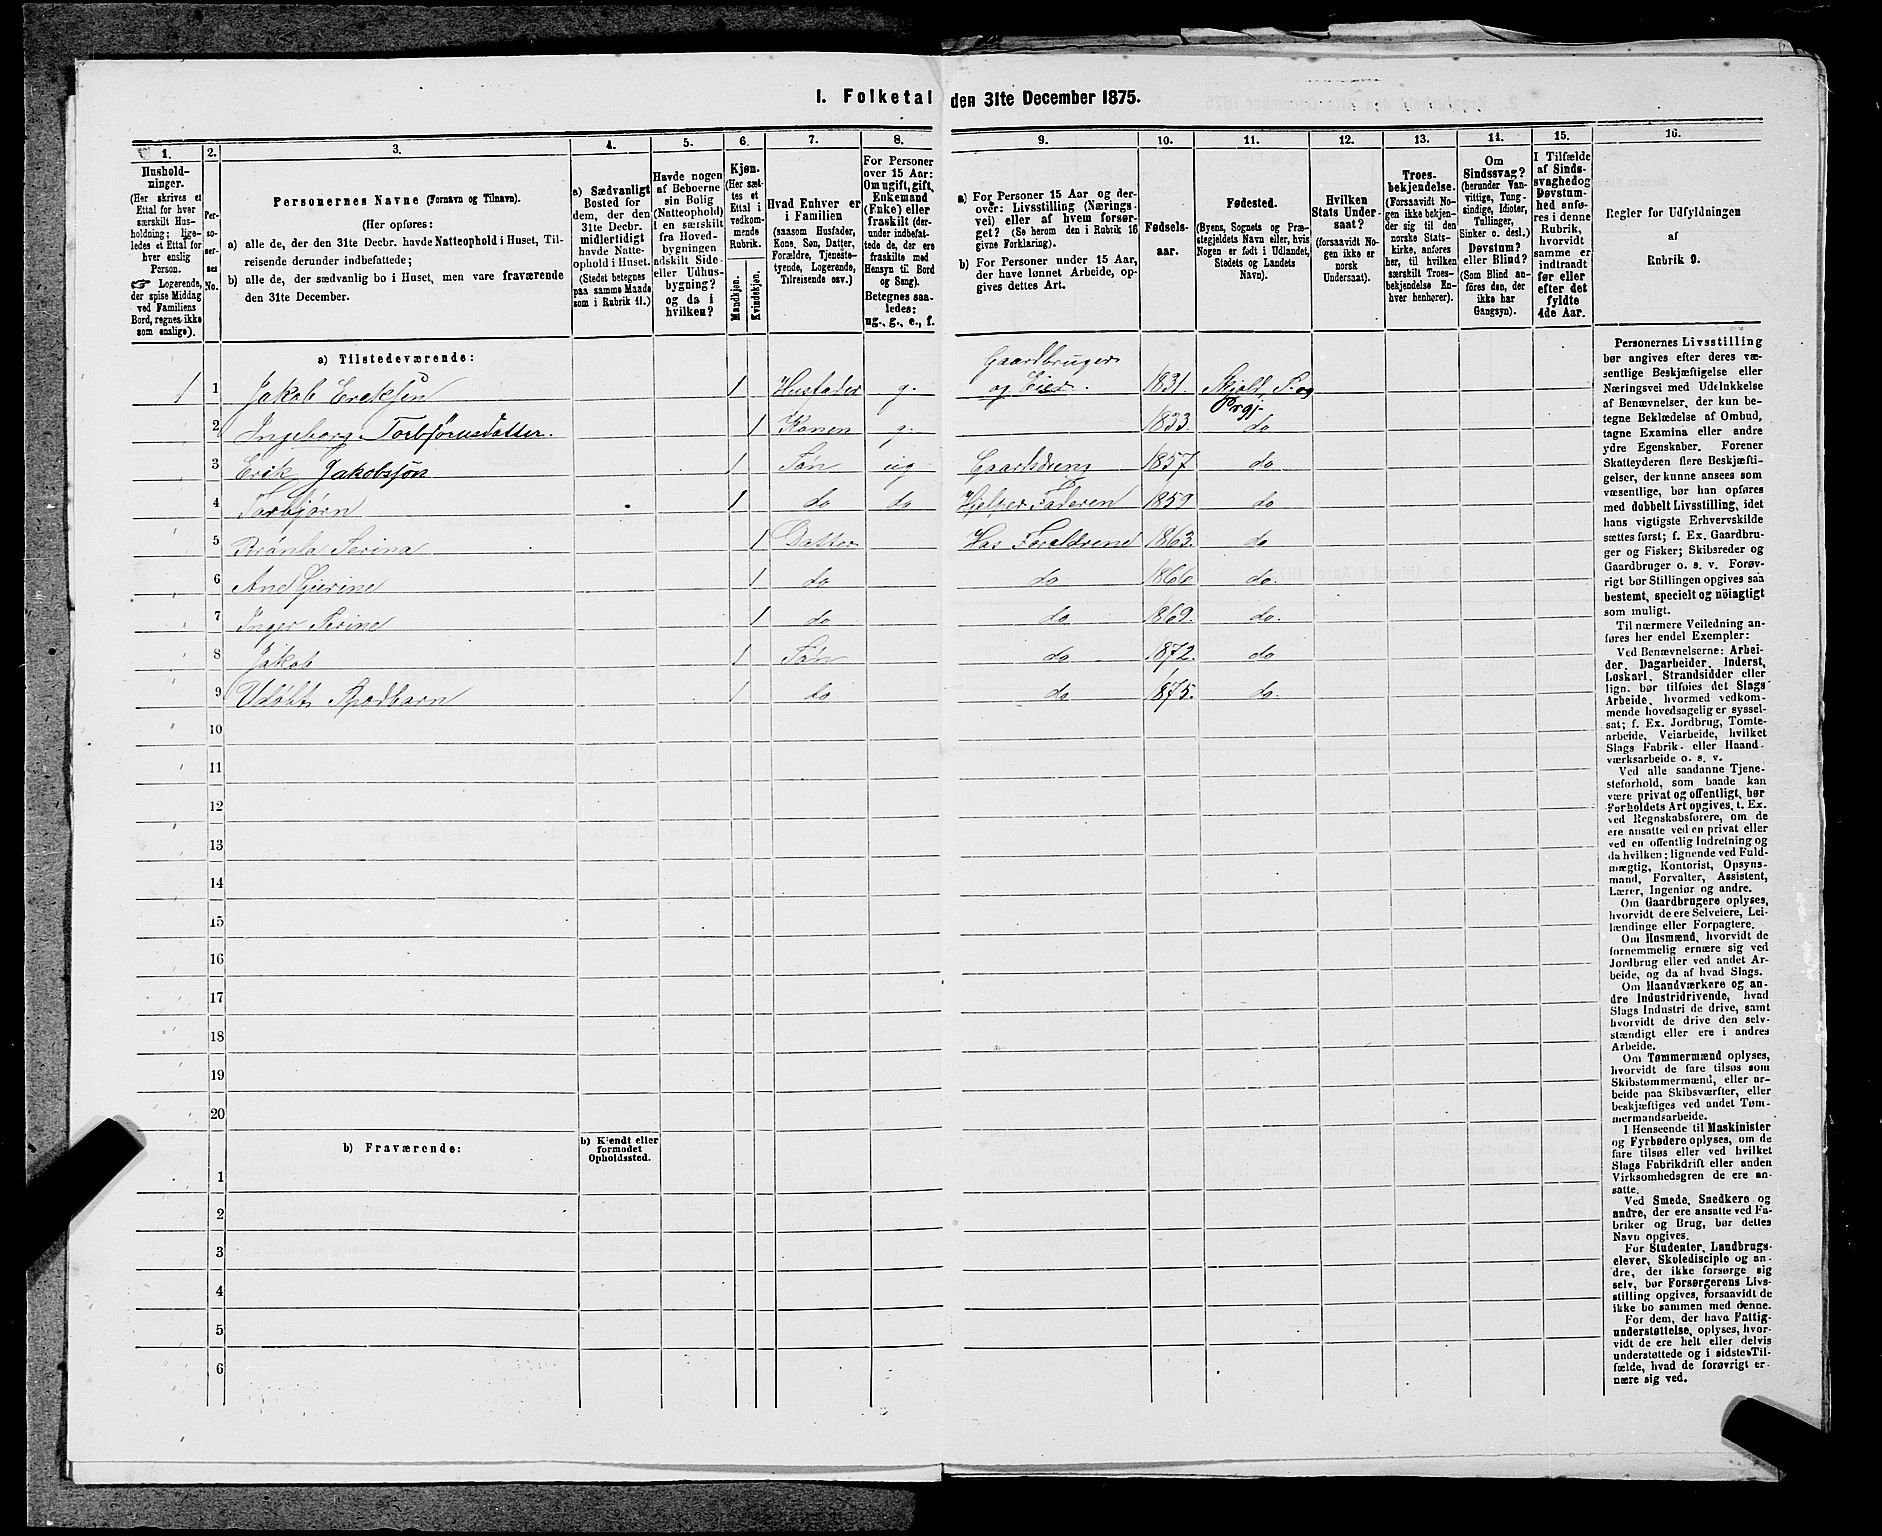 I. Folketal den 31te December 1875.
1. 2. 3. 4. 5. 6. 7. 8. 9. 10. 11. 12. 13. 14. 15. 16.
Hushold-
ninger.
(Her skrives et
Ettal for hver
særskilt Hus-
holdning; lige-
ledes et Ettal for
hver enslig
Person.
☞ Logerende,
der spise Middag
ved Familiens
Bord, regnes ikke
som enslige).
Per-
soner-
nes
No.
Personernes Navne (Fornavn og Tilnavn).
(Her opføres:
a) alle de, der den 31te Decbr. havde Natteophold i Huset, Til-
reisende derunder indbefattede;
b) alle de, der sædvanlig bo i Huset, men vare fraværende
den 31te December.
a) Sædvanligt
Bosted for
dem, der den
31te Decbr.
midlertidigt
havde Natte-
ophold i Huset.
(Stedet betegnes
paa samme Maade
som i Rubrik 11.)
Havde nogen
af Beboerne
sin Bolig
(Natteophold)
i en særskilt
fra Hoved-
bygningen
adskilt Side-
eller Udhus-
bygning?
og da i
hvilken?
Kjøn.
(Her sæt-
tes et
Ettal i
vedkom-
mende
Rubrik.
Mandkjøn.
Kvindekjøn.
Hvad Enhver er
i Familien
(saasom Husfader,
Kone, Søn, Datter,
Forældre, Tjeneste-
tyende, Logerende,
Tilreisende osv.)
For Personer
over 15 Aar:
Om ugift, gift,
Enkemand
(Enke) eller
fraskilt (der-
under indbefat-
tede de, der ere
fraskilte med
Hensyn til Bord
og Seng).
Betegnes saa-
ledes:
ug., g., e., f.
a) For Personer 15 Aar og der-
over: Livsstilling (Nærings-
vei) eller af hvem forsør-
get? (Se herom den i Rubrik 16
givne Forklaring).
b) For Personer under 15 Aar,
der have lønnet Arbeide, op-
gives dettes Art.
Fødsels-
aar.
Fødested.
(Byens, Sognets og Præ-
stegjeldets Navn eller, hvis
Nogen er født i Udlandet,
Stedets og Landets
Navn).
Hvilken
Stats Under-
saat?
(forsaavidt No-
gen ikke er
norsk
Undersaat).
Troes-
bekjendelse.
(Forsaavidt No-
gen ikke bekjen-
der sig til den
norske Stats-
kirke, anføres
her, til hvilken
særskilt Troes-
bekjendelse En-
hver henhører).
Om
Sindssvag?
(herunder Van-
vittige, Tung-
sindige, Idioter,
Tullinger,
Sinker o. desl.)
Døvstum?
eller Blind?
(Som Blind an-
føres den, der
ikke har
Gangsyn).
I Tilfælde
af Sinds-
svaghed og
Døvstum-
hed anfø-
res i denne
Rubrik,
hvorvidt
samme er
indtraadt
før eller
efter det
fyldte
4de Aar.
Regler for Udfyldningen
af
Rubrik 9.
a) Tilstedeværende:
1 1 Jakob Eriksen 1 Husfader g. Gaardbruger og Eier. 1831. Skjold, S. og Prgj.
2 Ingeborg Torbjørnsdatter. 1 Konen g. 1833. do
3 Erik Jakobssøn 1 Søn ug Gaardsdreng 1857 do
4 Torbjørn 1 do do Hjelper Faderen 1859 do
5 Brønla Serina 1 Datter Hos Forældrene 1863. do
6 Ane Gurine 1 do do 1866 do.
7 Inger Serine 1 do do 1869. do.
8 Jakob 1 Søn do 1872. do
9 Udøbt Spædbarn 1 do do 1875. do.
10
11
12
13
14
15
16
17
18
19
20
b) Fraværende:
b) Kjendt eller
formodet
Opholdssted.
1
2
3
4
5
6
Personernes Livsstilling
bør angives efter deres væ-
sentlige Beskjæftigelse eller
Næringsvei med Udelukkelse
af Benævnelser, der kun be-
tegne Beklædelse af Ombud,
tagne Examina eller andre
ydre Egenskaber. Forener
Skatteyderen flere Beskjæfti-
gelser, der kunne ansees som
væsentlige, bør han opføres
med dobbelt Livsstilling, idet
hans vigtigste Erhvervskilde
sættes først; f. Ex. Gaardbru-
ger og Fisker; Skibsreder og
Gaardbruger o. s. v. Forøv-
rigt bør Stillingen opgives saa
bestemt, specielt og nöiagtigt
som muligt.
Til nærmere Veiledning an-
føres her endel Exempler:
Ved Benævnelserne: Arbei-
der, Dagarbeider, Inderst,
Løskarl, Strandsidder eller
lign. bør tilføies det Slags
Arbeide, hvormed vedkom-
mende hovedsagelig er syssel-
sat; f. Ex. Jordbrug, Tomte-
arbeide, Veiarbeide, hvilket
Slags Fabrik- eller Haand-
værksarbeide o. s. v.
Ved alle saadanne Tjene-
steforhold, som baade kan
være privat og offentligt, bør
Forholdets Art opgives, t. Ex.
ved Regnskabsførere, om de
ere ansatte ved en privat eller
ved en offentlig Indretning og
da hvilken; lignende ved Fuld-
mægtig, Kontorist, Opsyns-
mand, Forvalter, Assistent,
Lærer, Ingeniør og andre.
Om Gaardbrugere oplyses,
hvorvidt de ere Selveiere, Lei-
lændinge eller Forpagtere.
Om Husmænd, hvorvidt de
fornemmelig ernære sig ved
Jordbrug eller ved andet Ar-
beide, og da af hvad Slags.
Om Haandværkere og an-
dre Industridrivende, hvad
Slags Industri de drive, samt
hvorvidt de drive den selv-
stændigt eller ere i andres
Arbeide.
Om Tømmermænd oplyses,
hvorvidt de fare tilsøs som
Skibstømmermænd, eller ar-
beide paa Skibsværfter, eller
beskjæftiges ved andet Tøm-
mermandsarbeide.
I Henseende til Maskinister
og Fyrbødere oplyses, om de
fare tilsøs eller ved hvilket
Slags Fabrikdrift eller anden
Virksomhedsgren de ere an-
satte.
Ved Smede, Snedkere og
andre, der ere ansatte ved Fa-
briker og Brug, bør dettes
Navn opgives.
For Studenter, Landbrugs-
elever, Skoledisciple og an-
dre, der ikke forsørge sig
selv, bør Forsørgerens Livs-
stilling opgives, forsaavidt de
ikke bo sammen med denne.
For dem, der have Fattig-
understøttelse, oplyses, hvor-
vidt de ere helt eller delvis
understøttede og i sidste Til-
fælde, hvad de forøvrigt er-
nære sig ved.